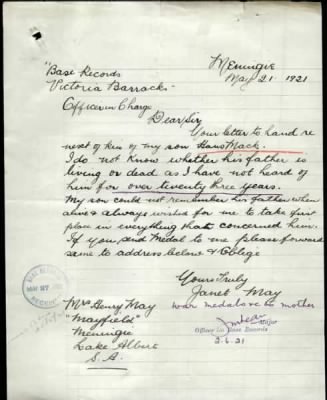 Meningie
May 21 1921
"Base Records
Victoria Barracks
Officer in Charge
Dear Sir
Your letter to hand re
next of kin of my son Mack.
I do not know whether his father is
living or dead as I have not heard of
him for over twenty three years.
My son could not remember his father when
alive & always wished for me to take first
place in everything that concerned him.
If you send Medal to me please forward
same to address below & Oblige
Yours Truly
Janet May
Mrs Henry May
"Mayfield"
Meningie
Lake Albert
S.A.
war medals to mother
Major
Officer i/c Base Records
2.6.21